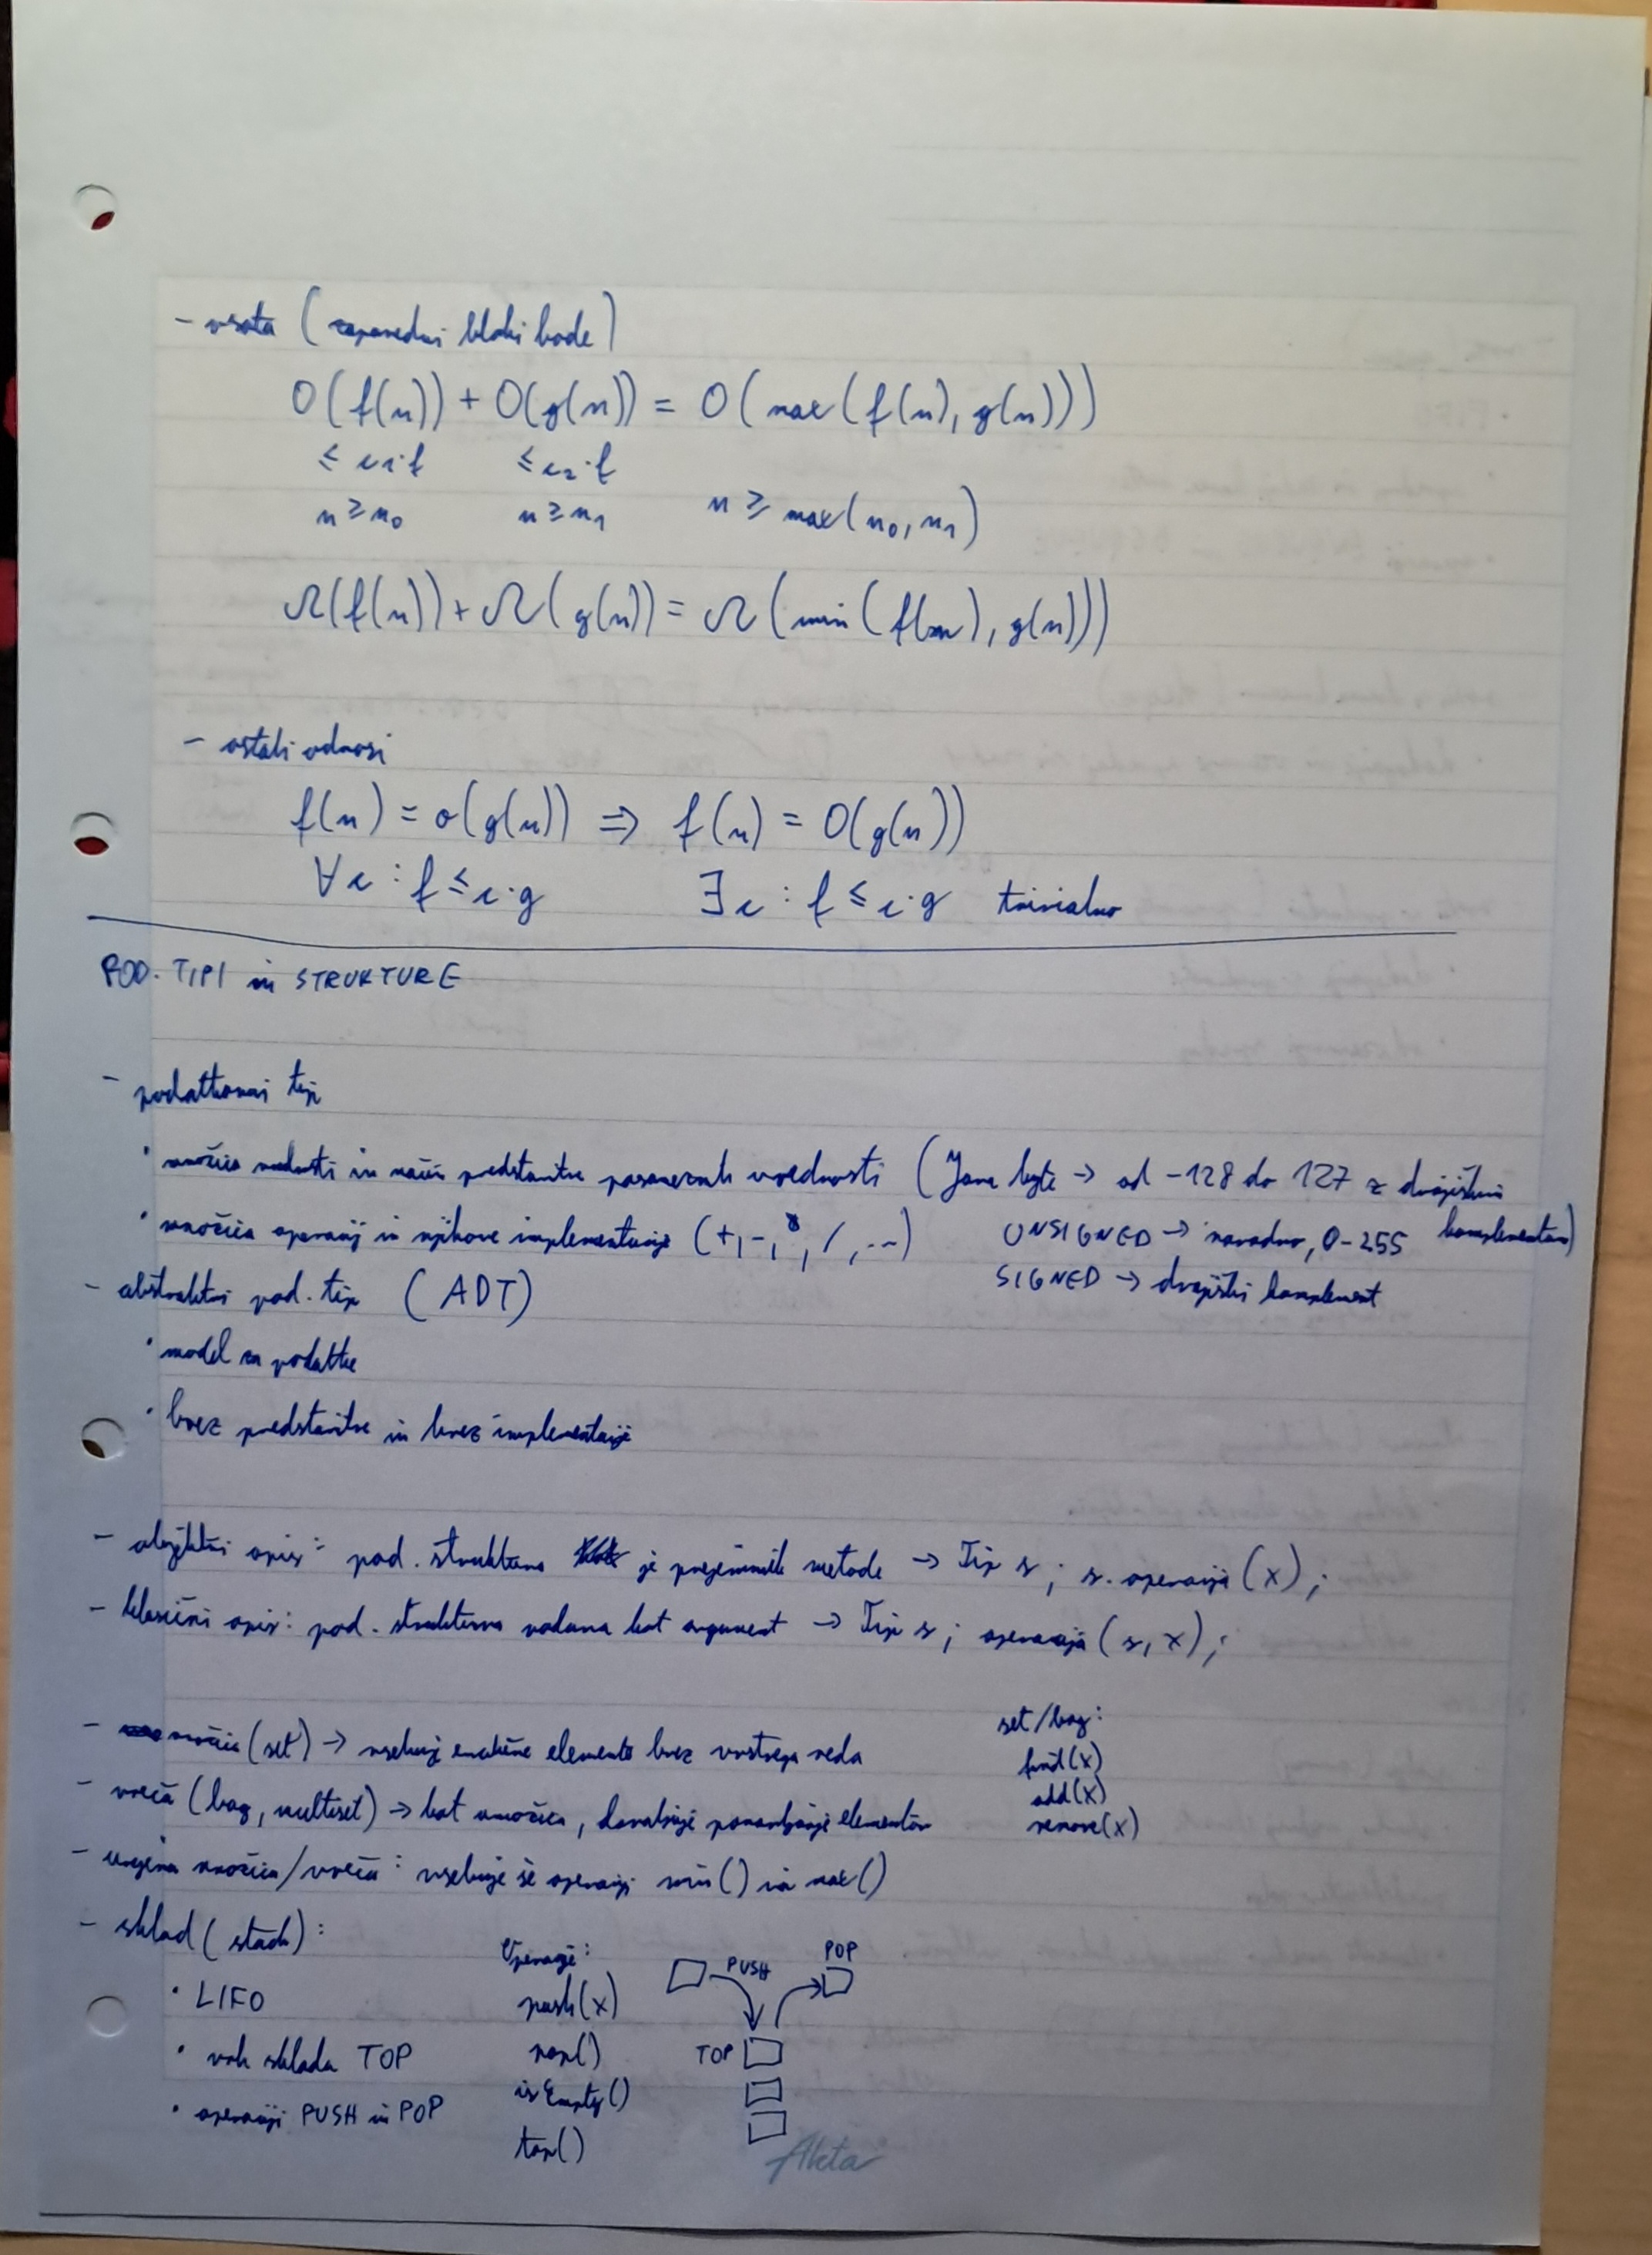 - vsota (zaporedni bloki kode)
O(f(n)) + O(g(n)) = O(max(f(n), g(n)))
≤ c₁·f ≤ c₂·f
n ≥ n₀ n ≥ n₁ n ≥ max(n₀, n₁)
Ω(f(n)) + Ω(g(n)) = Ω(min(f(n), g(n)))
- ostali odnosi
f(n) = o(g(n)) ⇒ f(n) = O(g(n))
∀c : f ≤ c·g ∃c : f ≤ c·g trivialno
POD. TIPI in STRUKTURE
- podatkovni tip
· množica vrednosti in način predstavitve posameznih vrednosti (Java byte → od -128 do 127 z dvojiškim komplementom)
· množica operacij in njihove implementacije (+, -, *, /, ...)
UNSIGNED → navadno, 0-255
SIGNED → dvojiški komplement
- abstraktni pod. tip (ADT)
· model za podatke
· brez predstavitve in brez implementacije
- objektni opis: pod. struktura je prejemnik metode → Tip s; s.operacija(x);
- klasični opis: pod. struktura podana kot argument → Tip s; operacija(s, x);
- množica (set) → vsebuje enolične elemente brez vrstnega reda
- vreča (bag, multiset) → kot množica, dovoljuje ponavljanje elementov
set/bag:
find(x)
add(x)
remove(x)
- urejena množica/vreča: vsebuje še operaciji min() in max()
- sklad (stack):
· LIFO
· vrh sklada TOP
· operaciji PUSH in POP
Operacije:
push(x)
pop()
isEmpty()
top()
PUSH
POP
TOP
Akta